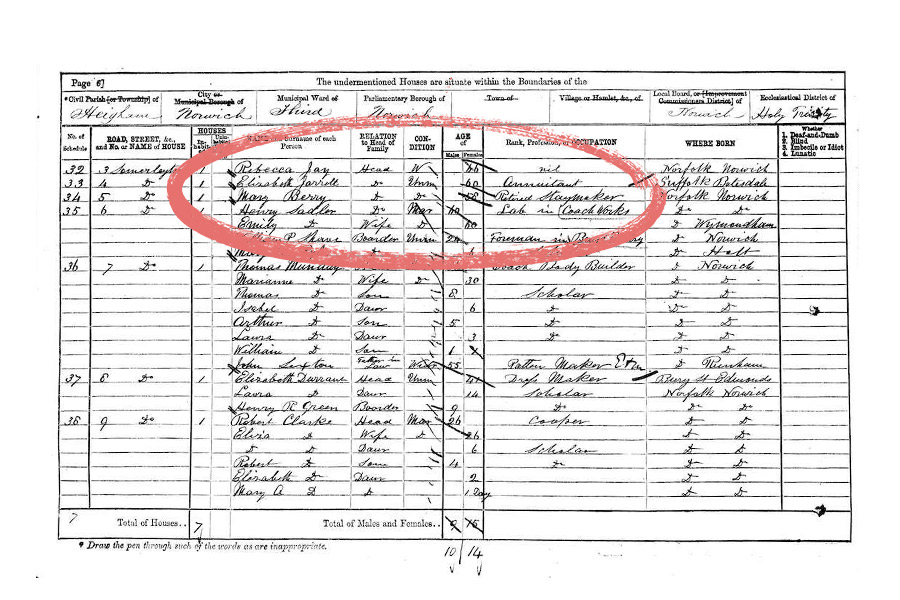 Page 6]
The undermentioned Houses are situate within the Boundaries of the
*Civil Parish [or Township] of
City or Municipal Borough of
Municipal Ward of
Parliamentary Borough of
Town of
Village or Hamlet, &c., of
Local Board, or [Improvement Commissioners District] of
Ecclesiastical District of
Heigham Norwich Third Norwich Norwich Holy Trinity
No. of Schedule
ROAD, STREET, &c., and No. or NAME of HOUSE
HOUSES
NAME and Surname of each Person
RELATION to Head of Family
CONDITION
AGE of
Males Females
Rank, Profession, or OCCUPATION
WHERE BORN
Whether
1. Deaf-and-Dumb
2. Blind
3. Imbecile or Idiot
4. Lunatic
32 3 Somerleyton 1 Rebecca Jay Head W nil Norfolk Norwich
33 4 Do 1 Elizabeth Jarrold Do Unm 60 Annuitant Suffolk Botesdale
34 5 Do 1 Mary Berry D D Retired Staymaker Norfolk Norwich
35 6 Do 1 Henry Sadler Do Mar Lab in Coach Works D D
Emily D Wife D D Wymondham
Boarder Unm Foreman in D Norwich
D Holt
36 7 Do 1 Thomas Coach Body Builder D Norwich
Marianne D Wife D 30 D D
Thomas D Son 8 Scholar D D
Isabel D Daur 6 D D D
Arthur D Son 5 D D D
Laura D Daur 3 D D D
William D Son 1 D D
John Sexton Father in Law Widr 55 Patten Maker D
37 8 Do 1 Elizabeth Durrant Head Unm Dress Maker Bury St Edmunds
Laura D Daur 14 Scholar Norfolk Norwich
Henry R Green Boarder 9 Do D D
9 Do 1 Robert Clarke Head Mar 26 Cooper D D
D Wife D 26 D D
D D Daur 6 Scholar D D
Robert D Son 4 D D D
Elizabeth D Daur 2 D D
Mary A D D 1 Day D D
7 Total of Houses.. 7 Total of Males and Females.. 9 15
* Draw the pen through such of the words as are inappropriate.
10 14